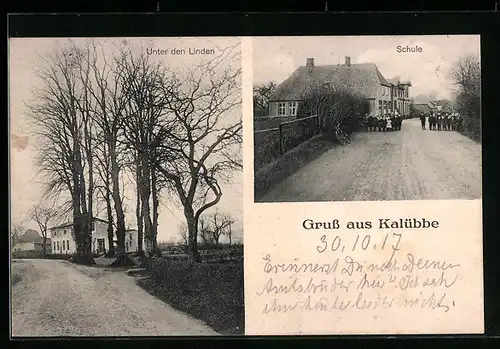 Unter den Linden
Schule
Gruß aus Kalübbe
30.10.17
Erinnerst Du noch Deinen
Amtsbruder hier? Ich sah
ihn heute leider nicht.